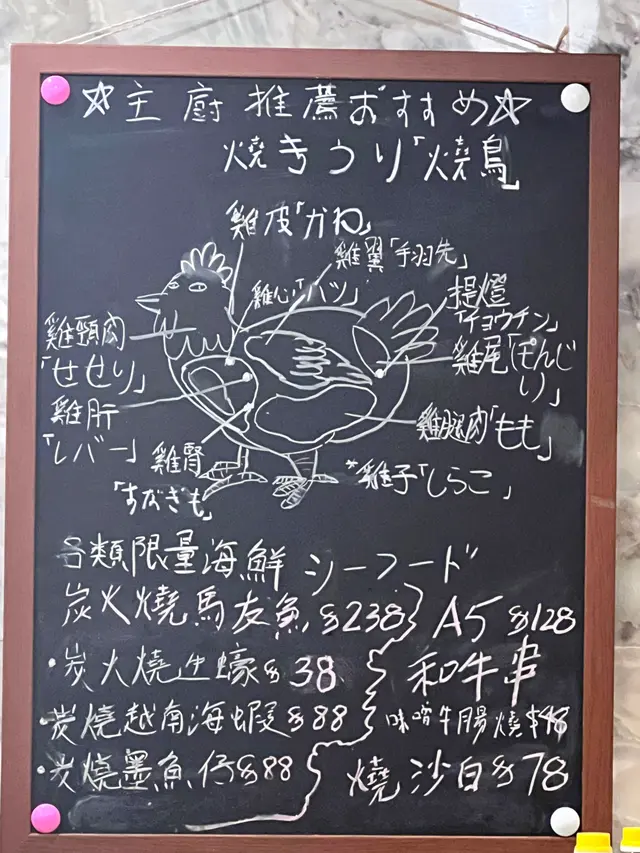 ☆主廚推薦おすすめ☆
燒きつり「燒鳥」
雞皮「かわ」
雞翼「手羽先」
雞心「ハツ」
提燈
「チョウチン」
雞頸肉
「せせり」
雞尾「ぽんじ
り」
雞肝
「レバー」
雞腿肉「もも」
雞腎
「すなぎも」
*雞子「しらこ」
各類限量海鮮 シーフード
炭火燒馬友魚$238
A5 $128
和牛串
・炭火燒生蠔$38
・炭燒越南海蝦$88
味噌牛腸燒$48
・炭燒墨魚仔$88
燒沙白$78